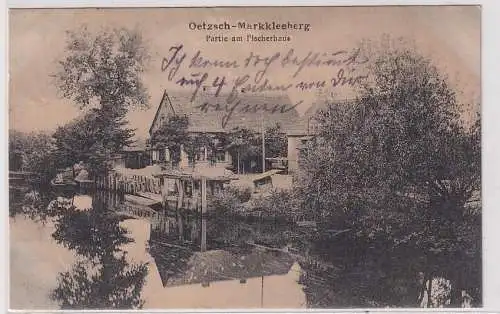 Oetzsch-Markkleeberg
Partie am Fischerhaus
Ich kann doch bestimmt
auf 4 von dir
rechnen